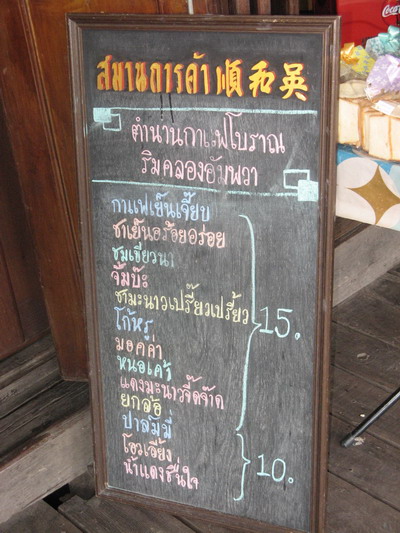 สมานการค้า 順和吳
ตำนานกาแฟโบราณ
ริมคลองอัมพวา
กาแฟเย็นเจี๊ยบ
ชาเย็นอร่อยอร่อย
จ้ำบ๊ะ
ชามะนาวเปรี๊ยวเปรี้ยว
โก้หรู
15.
มอคค่า
แดงมะนาวจี๊ดจ๊าด
ยกล้อ
ปาล์มมี่
โอวเลี้ยง
10.
น้ำแดงชื่นใจ